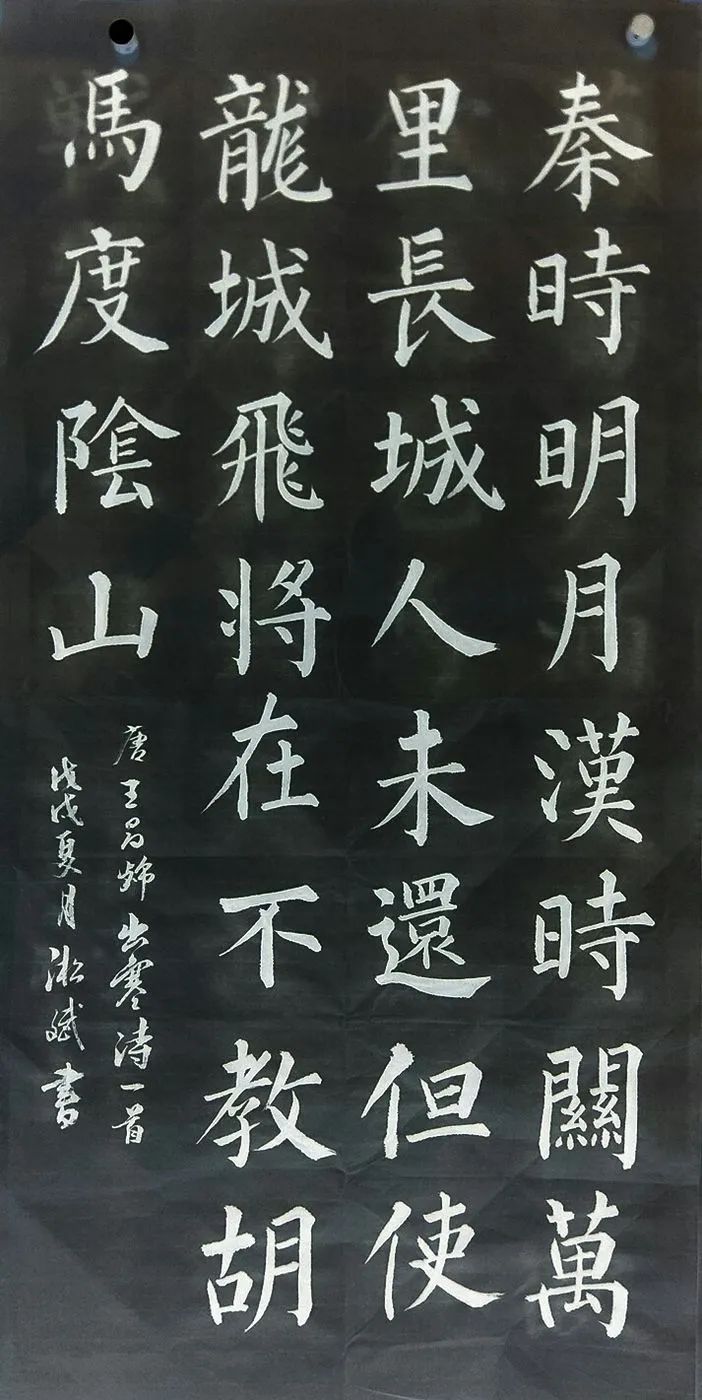 秦時明月漢時關萬
里長城人未還但使
龍城飛將在不教胡
馬度陰山
唐王昌齡出塞詩一首
戊戌夏月淞斌書